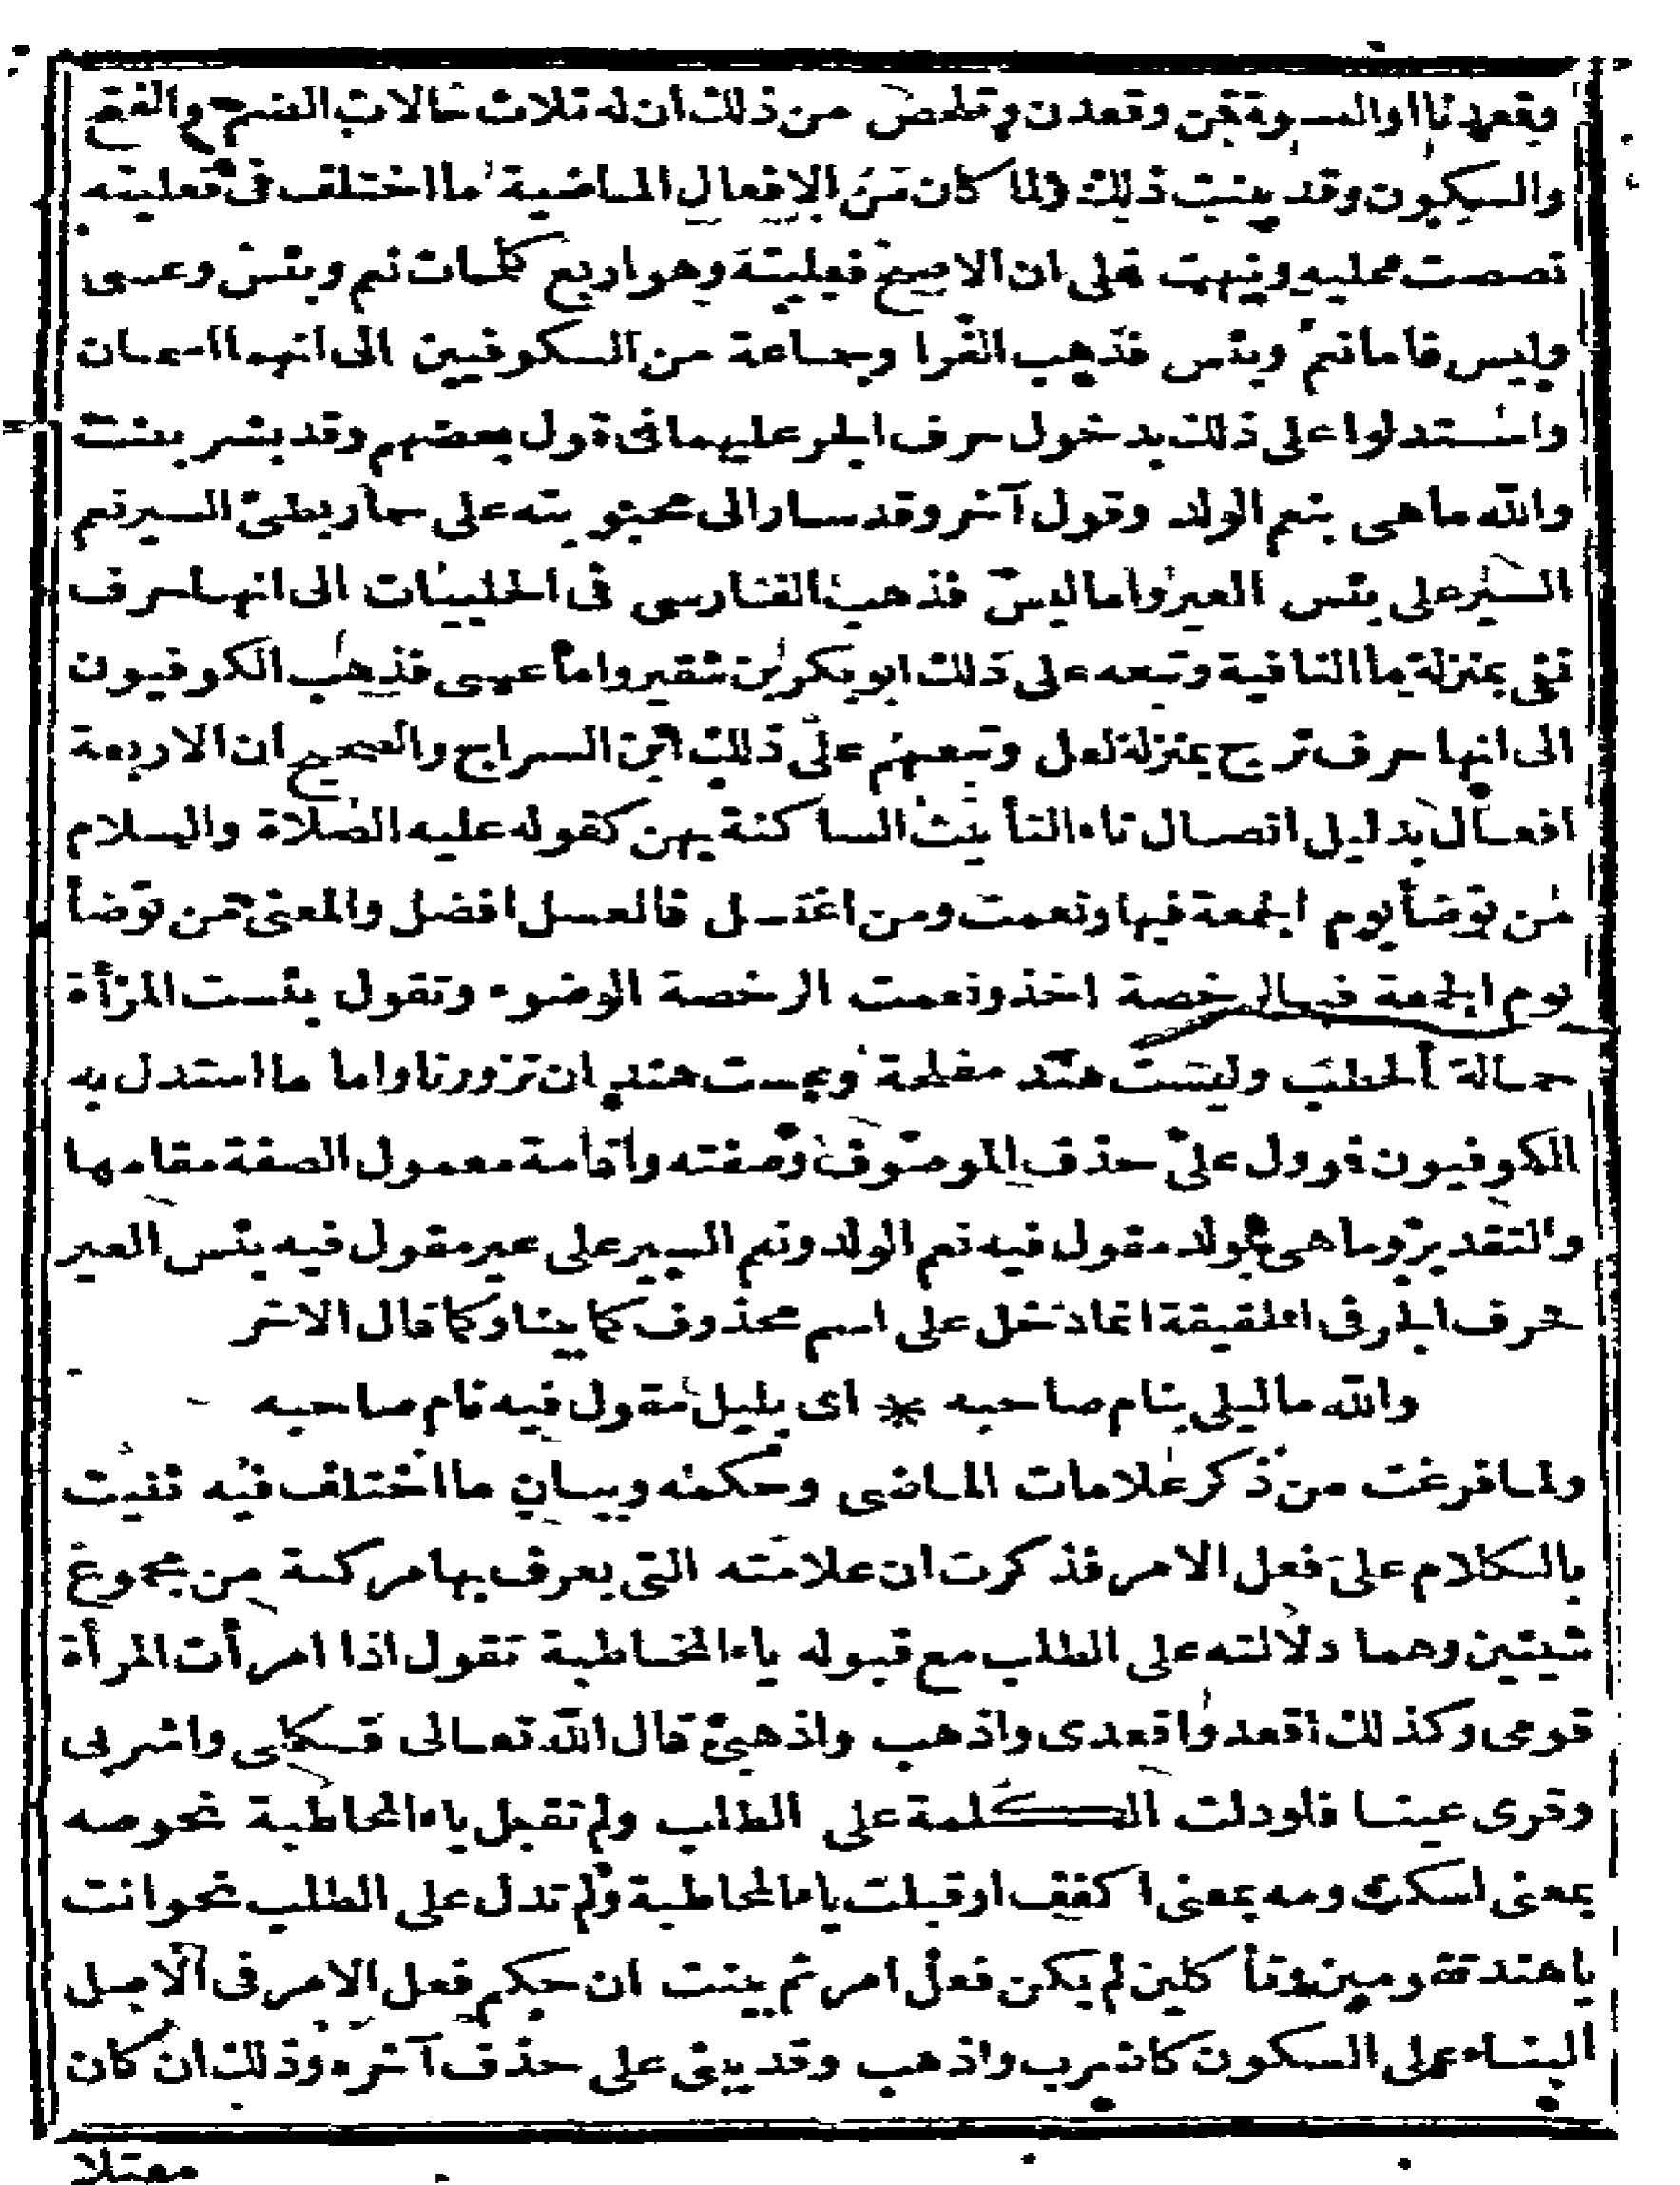 وقعدنا او النسوة قمن وقعدن وتلخص من ذلك ان له ثلاث حالات الضم والفتح
والسكون وقد بينت ذلك ولما كان من الافعال الماضية ما اختلف فى فعليته
نصصت عليه ونبهت على ان الاصح فعليته وهو اربع كلمات نعم وبئس وعسى
وليس فاما نعم وبئس فذهب الفرا وجماعة من الكوفيين الى انهما اسمان
واستدلوا على ذلك بدخول حرف الجر عليهما فى قول بعضهم وقد بشر ببنت
والله ما هى بنعم الولد وقول آخر وقد سار الى محبوبته على حمار بطئ السير نعم
السير على بئس العير واما ليس فذهب الفارسى فى الحلبيات الى انها حرف
نفى بمنزلة ما النافية وتبعه على ذلك ابو بكر بن شقير واما عسى فذهب الكوفيون
الى انها حرف ترج بمنزلة لعل وتبعهم على ذلك ابن السراج والصحيح ان الاربعة
افعال بدليل اتصال تاء التأنيث الساكنة بهن كقوله عليه الصلاة والسلام
من توضأ يوم الجمعة فبها ونعمت ومن اغتسل فالغسل افضل والمعنى من توضأ
يوم الجمعة فبالرخصة اخذ ونعمت الرخصة الوضوء وتقول بئست المرأة
حمالة الحطب وليست هند مفلحة وعست هند ان تزورنا واما ما استدل به
الكوفيون فمؤول على حذف الموصوف وصفته واقامة معمول الصفة مقامها
والتقدير وما هى بولد مقول فيه نعم الولد ونعم السير على عير مقول فيه بئس العير
فحرف الجر فى الحقيقة انما دخل على اسم محذوف كما بينا وكما قال الاخر
والله ما ليلى بنام صاحبه * اى بليل مقول فيه نام صاحبه
ولما فرغت من ذكر علامات الماضى وحكمه وبيان ما اختلف فيه ثنيت
بالكلام على فعل الامر فذكرت ان علامته التى يعرف بها مركبة من مجموع
شيئين وهما دلالته على الطلب مع قبوله ياء المخاطبة تقول اذا امرأت المرأة
قومى وكذلك اقعد واقعدى واذهب واذهبى قال الله تعالى فكلى واشربى
وقرى عينا فلو دلت الكلمة على الطلب ولم تقبل ياء المخاطبة نحو صه
بمعنى اسكت ومه بمعنى اكفف او قبلت ياء المخاطبة ولم تدل على الطلب نحو انت
يا هند تقومين وتأكلين لم يكن فعل امر ثم بينت ان حكم فعل الامر فى الاصل
البناء على السكون كاضرب واذهب وقد يبنى على حذف آخره وذلك ان كان
معتلا